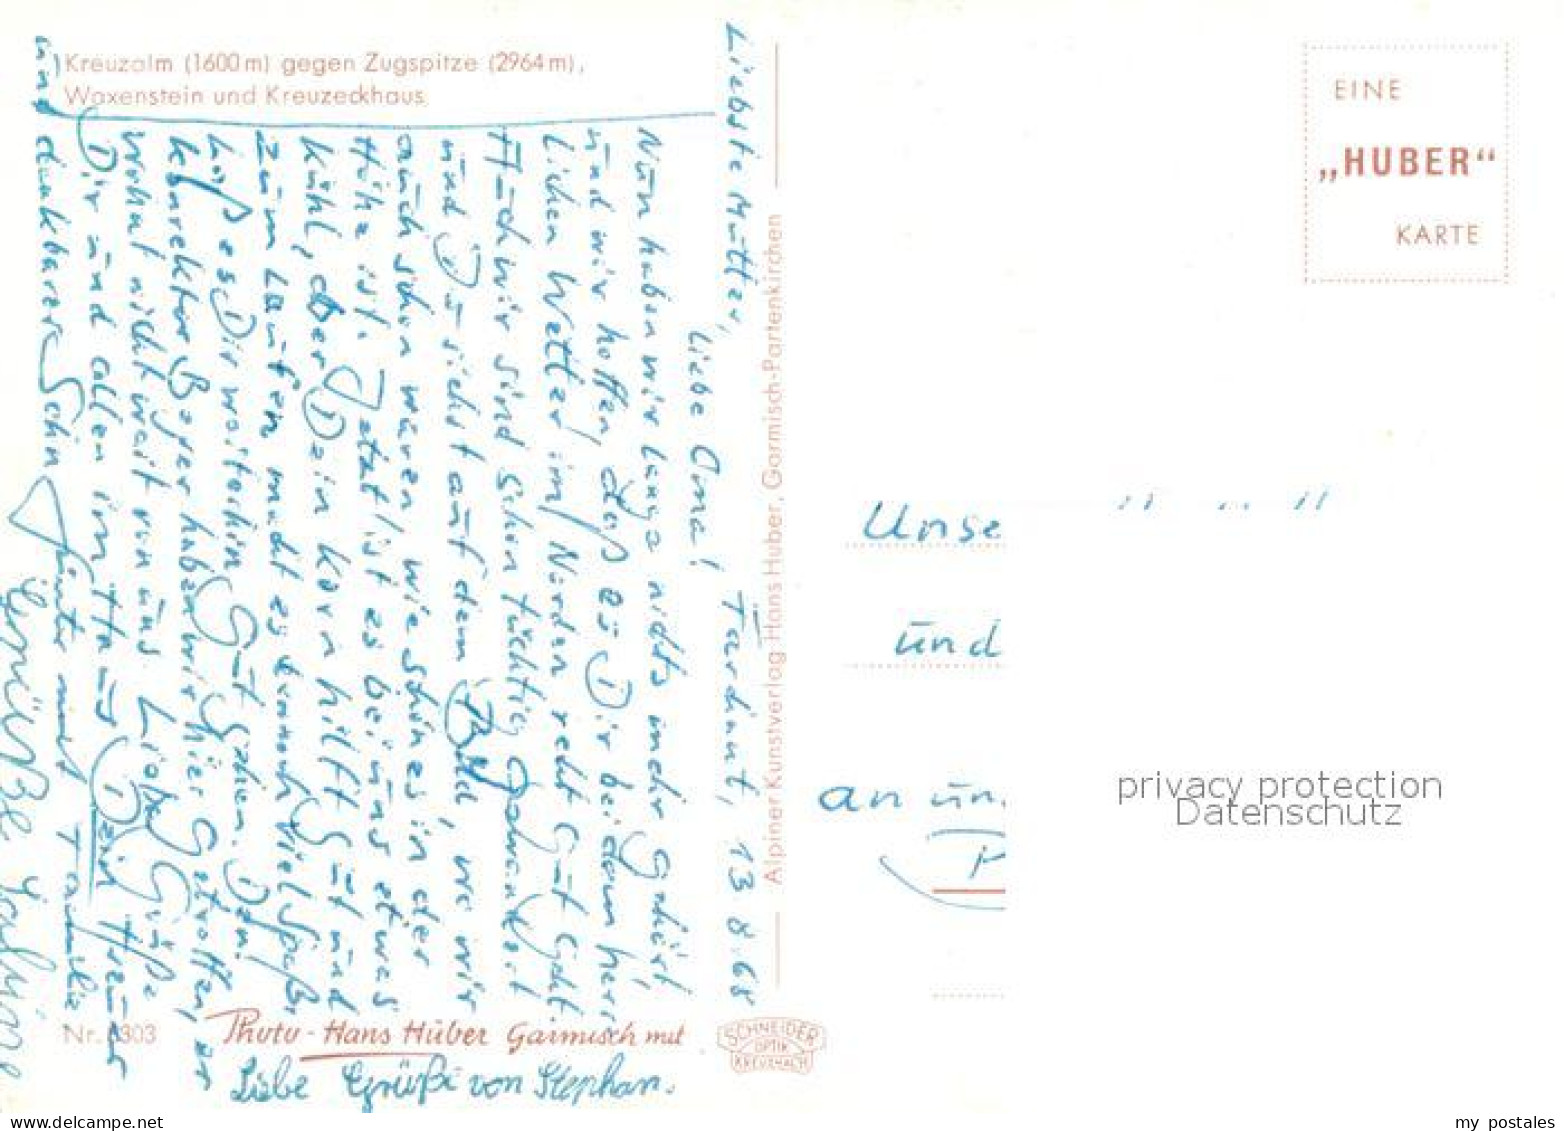 Kreuzalm (1600 m) gegen Zugspitze (2964 m),
Waxenstein und Kreuzeckhaus
Liebste Mutter,
Liebe Oma! 13.8.68
Nun haben wir lange nichts mehr gehört
und wir hoffen, daß es Dir bei dem herr-
lichen Wetter im Norden recht gut geht.
Auch wir sind schon tüchtig gewandert
und Du siehst auf dem Bild, wo wir
auch schon waren, wie schön es in der
Höhe ist. Jetzt ist es bei uns etwas
kühl, aber Dein hilft gut und
zum Laufen macht es viel Spaß.
Laß es Dir weiterhin gut gehen. Den
Konrektor Beyer haben wir hier getroffen, er
wohnt nicht weit von uns. Liebe Grüße
Dir und allen im Haus Dein treuer
und dankbarer Sohn Günter mit Familie
Grüße
Liebe Grüße von Stephan.
Alpiner Kunstverlag Hans Huber, Garmisch-Partenkirchen
Nr. 303
Photo-Hans Huber Garmisch mit
SCHNEIDER
OPTIK
KREUZNACH
EINE
„HUBER“
KARTE
Unse
und
an un
privacy protection
Datenschutz
www.delcampe.net
my_postales